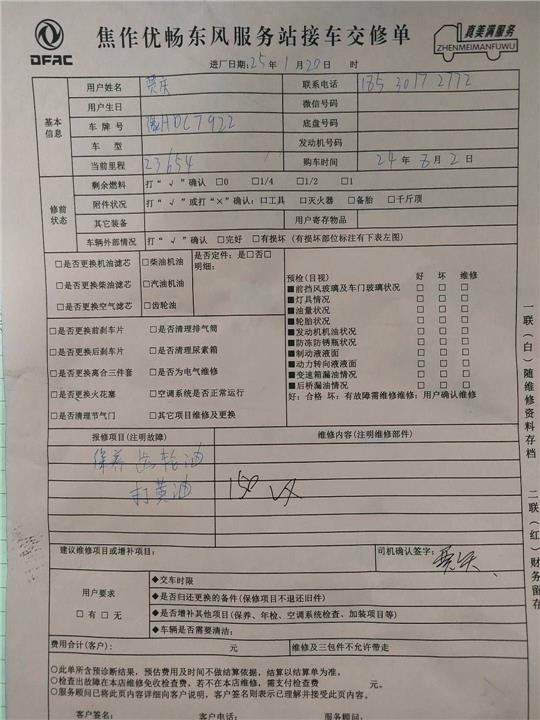 DFAC
焦作优畅东风服务站接车交修单
真美满服务
ZHENMEIMANFUWU
进厂日期:25年1月20日 时
基本信息
用户姓名 联系电话 185 3017 2772
用户生日 微信号码
车牌号 豫HDC7922 底盘号码
车型 发动机号码
当前里程 23654 购车时间 24年8月2日
修前状态
剩余燃料 打“√”确认 □0 □1/4 □1/2 □1
附件状况 打“√”或打“×”确认:□工具 □灭火器 □备胎 □千斤顶
其它装备 用户寄存物品
车辆外部情况 打“√”确认 □完好 □有损坏(有损坏部位标注有下表左图)
□是否更换机油滤芯 □柴油机油 是否定件:是□否□
明细:
□是否更换柴油滤芯 □汽油机油
□是否更换空气滤芯 □齿轮油
预检(目视) 好 坏 维修
■前挡风玻璃及车门玻璃状况 □ □ □
■灯具情况 □ □ □
■油量状况 □ □ □
■轮胎状况 □ □ □
■发动机机油状况 □ □ □
■防冻防锈瓶状况 □ □ □
■制动液液面 □ □ □
■动力转向液液面 □ □ □
■变速箱漏油情况 □ □ □
■后桥漏油情况 □ □ □
好:合格 坏:有故障需维修维修:用户确认维修
□是否更换前刹车片 □是否清理排气筒
□是否更换后刹车片 □是否清理尿素箱
□是否更换离合三件套 □是否为电气维修
□是否更换火花塞 □空调系统是否正常运行
□是否清理节气门 □其它项目维修及更换
报修项目(注明故障) 维修内容(注明维修部件)
保养 齿轮油
打黄油 150
建议维修项目或增补项目: 司机确认签字:
用户要求
□有 □无
◆交车时限
◆是否归还更换的备件(保修项目不退还旧件)
◆是否增补其他项目(保养、年检、空调系统检查、加装项目等)
◆车辆是否需要清洁:
费用合计(客户): 元 维修及三包件不允许带走
○此单所含预诊断结果,预估费用及时间不做结算依据,结算以结算单为准。
○检查出故障在本店维修免收检查费,若不在本店维修,需支付检查费 元。
○服务顾问已将此页内容详细向客户说明,客户签名则表示已理解并接受此页内容。
客户签名: 客户电话: 服务顾问:
一联(白)随维修资料存档
二联(红)财务留存